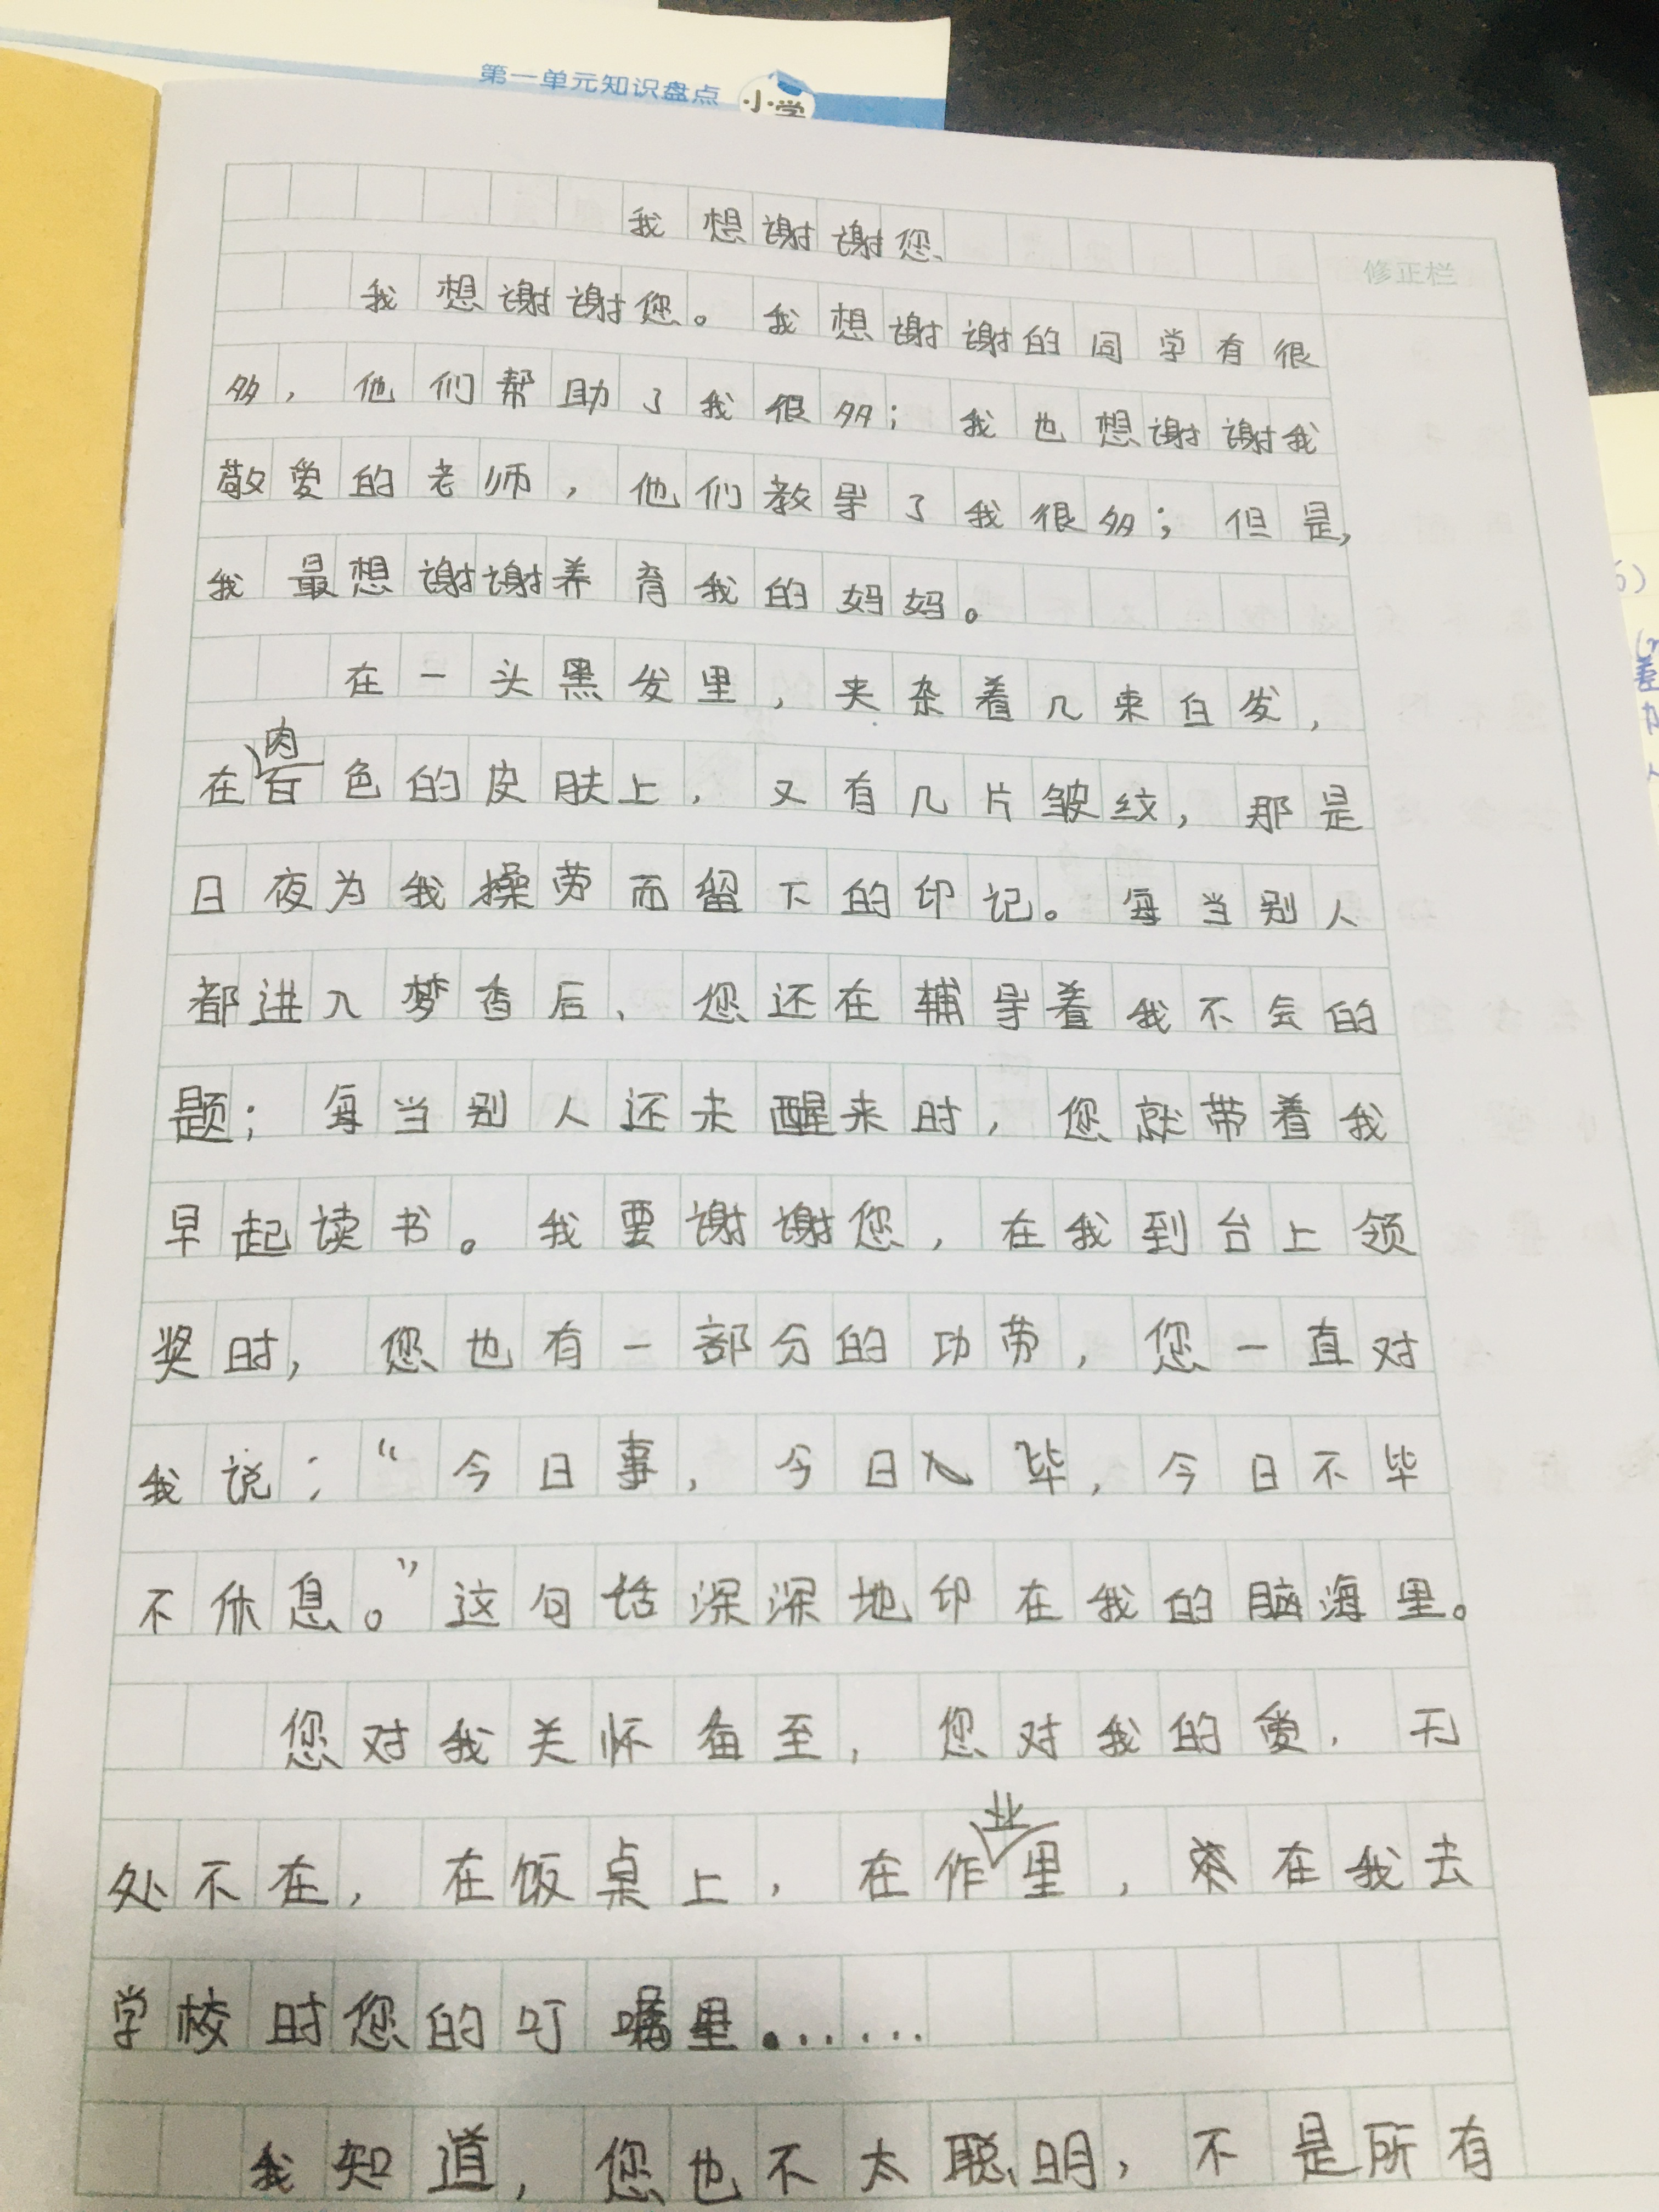 第一单元知识盘点 小学
我想谢谢您
修正栏
我想谢谢您。我想谢谢的同学有很
多，他们帮助了我很多；我也想谢谢我
敬爱的老师，他们教导了我很多；但是，
我最想谢谢养育我的妈妈。
在一头黑发里，夹杂着几束白发，
肉
在白色的皮肤上，又有几片皱纹，那是
日夜为我操劳而留下的印记。每当别人
都进入梦香后，您还在辅导着我不会的
题；每当别人还未醒来时，您就带着我
早起读书。我要谢谢您，在我到台上领
奖时，您也有一部分的功劳，您一直对
我说：“今日事，今日毕，今日不毕
不休息。”这句话深深地印在我的脑海里。
您对我关怀备至，您对我的爱，无
业
处不在，在饭桌上，在作里，在我去
学校时您的叮嘱里……
我知道，您也不太聪明，不是所有